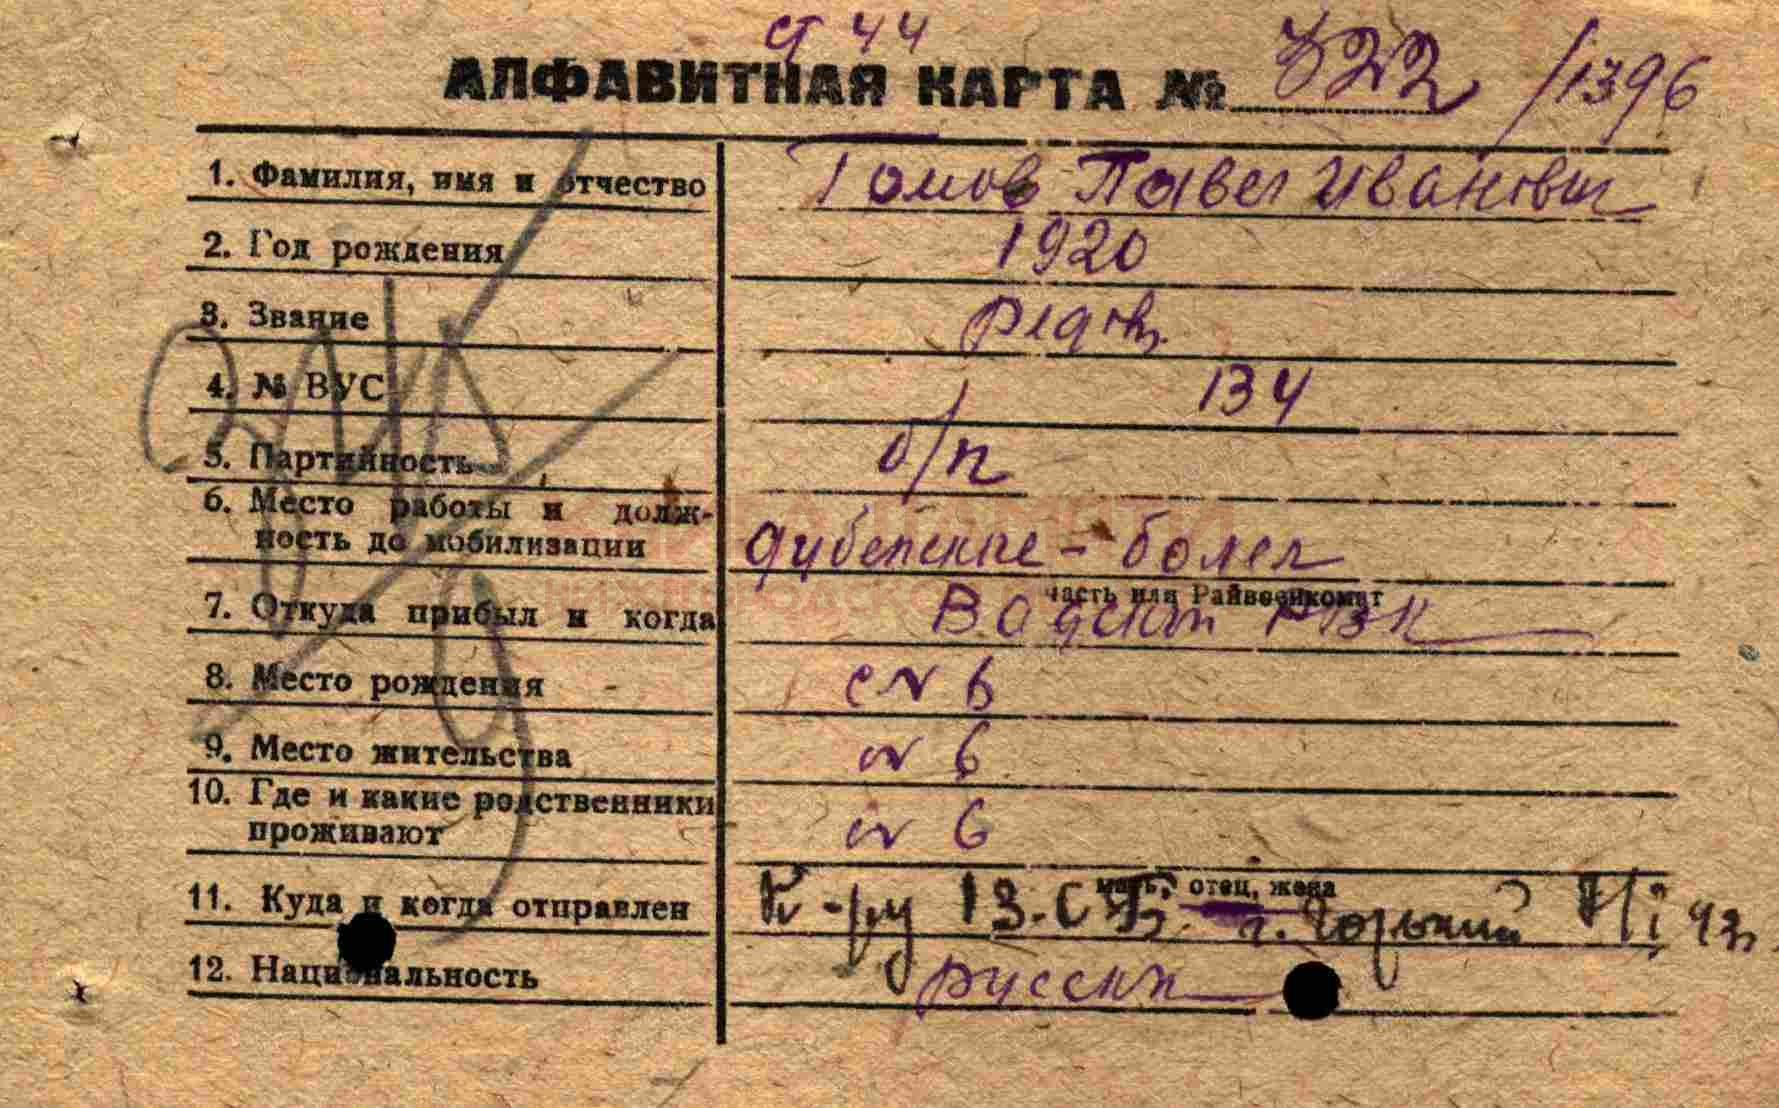 44
АЛФАВИТНАЯ КАРТА № 322 /1396
1. Фамилия, имя и отчество Томов Павел Иванович
2. Год рождения 1920
3. Звание рядов.
4. № ВУС 134
5. Партийность б/п
6. Место работы и долж-
ность до мобилизации
часть или Райвоенкомат
7. Откуда прибыл и когда Вадский РВК
8. Место рождения см 6
9. Место жительства см 6
10. Где и какие родственники
проживают см 6
мать, отец, жена
11. Куда и когда отправлен г. Горький
12. Национальность русский